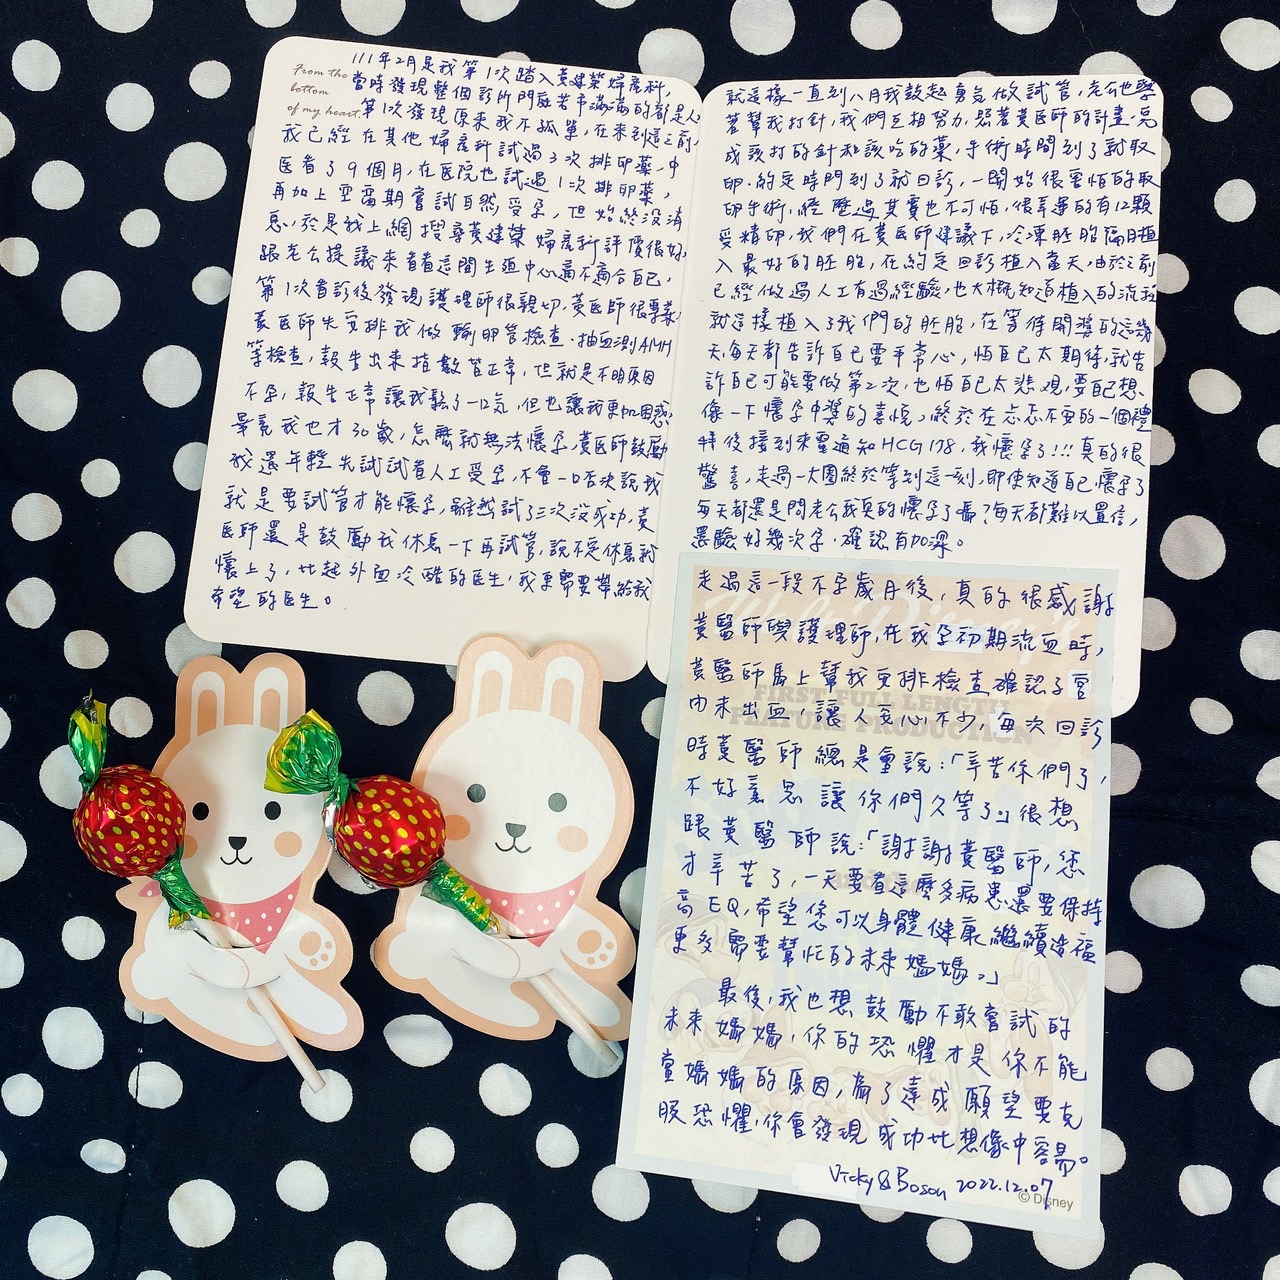 From the
bottom
of my heart.
111年2月是我第1次踏入黃建榮婦產科,
當時發現整個診所門庭若市滿滿的都是人
第1次發現原來我不孤單,在來到這之前,
我已經在其他婦產科試過3次排卵藥,中
医看了9個月,在医院也試過1次排卵藥,
再加上空窗期嘗試自然受孕,但始終沒消
息,於是我上網搜尋黃建榮婦產科評價很好,
跟老公提議來看看這間生殖中心適不適合自己,
第1次看診後發現護理師很親切,黃医師很專業,
黃医師先安排我做輸卵管檢查、抽血測AMH
等檢查,報告出來指數皆正常,但就是不明原因
不孕,報告正常讓我鬆了一口氣,但也讓我更加困惑,
畢竟我也才30歲,怎麼就無法懷孕,黃医師鼓勵
我還年輕先試試看人工受孕,不會一口否決說我
就是要試管才能懷孕,雖然試了三次沒成功,黃
医師還是鼓勵我休息一下再試管,說不定休息就
懷上了,比起外面冷酷的医生,我更需要帶給我
希望的医生。
就這樣一直到八月我鼓起勇气做試管,老公也學
著幫我打針,我們互相努力,照著黃医師的計畫,完
成該打的針和該吃的藥,手術時間到了就取
卵,約定時間到了就回診,一開始很害怕的取
卵手術,經歷過其實也不可怕,很幸運的有12顆
受精卵,我們在黃医師建議下,冷凍胚胎隔月植
入最好的胚胎,在約定回診植入當天,由於之前
已經做過人工有過經驗,也大概知道植入的流程
就這樣植入了我們的胚胎,在等待開獎的這幾
天,每天都告訴自已要平常心,怕自已太期待,就告
訴自己可能要做第二次,也怕自己太悲观,要自己想
像一下懷孕中獎的喜悅,終於在忐忑不安的一個禮
拜後接到來電通知HCG 178,我懷孕了!!!真的很
驚喜,走過一大圈終於等到這一刻,即使知道自己懷孕了
每天都還是問老公我真的懷孕了嗎?每天都難以置信,
還驗好幾次孕,確認有加深。
走過這一段不孕歲月後,真的很感謝
黃醫師與護理師,在我孕初期流血時,
黃醫師馬上幫我安排檢查確認子宮
內未出血,讓人安心不少,每次回診
時黃醫師總是會說:「辛苦你們了,
不好意思讓你們久等了」很想
跟黃醫師說:「謝謝黃醫師,您
才辛苦了,一天要看這麼多病患還要保持
高EQ,希望您可以身體健康繼續造福
更多需要幫忙的未來媽媽。」
最後,我也想鼓勵不敢嘗試的
未來媽媽,你的恐懼才是你不能
當媽媽的原因,為了達成願望要克
服恐懼,你會發現成功比想像中容易。
Vicky & Boson 2022.12.07
© Disney
FIRST FULL LENGTH
FEATURE PRODUCTION